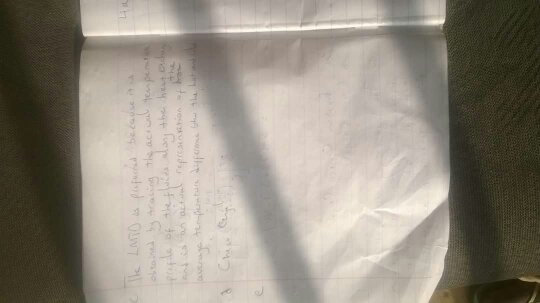 4a
c The LMTD is preferred because it is
obtained by tracing the actual temperature
profile of the fluids along the heat exchanger
and is an actual representation of the
average temperature difference btw the hot and
d Chen
e